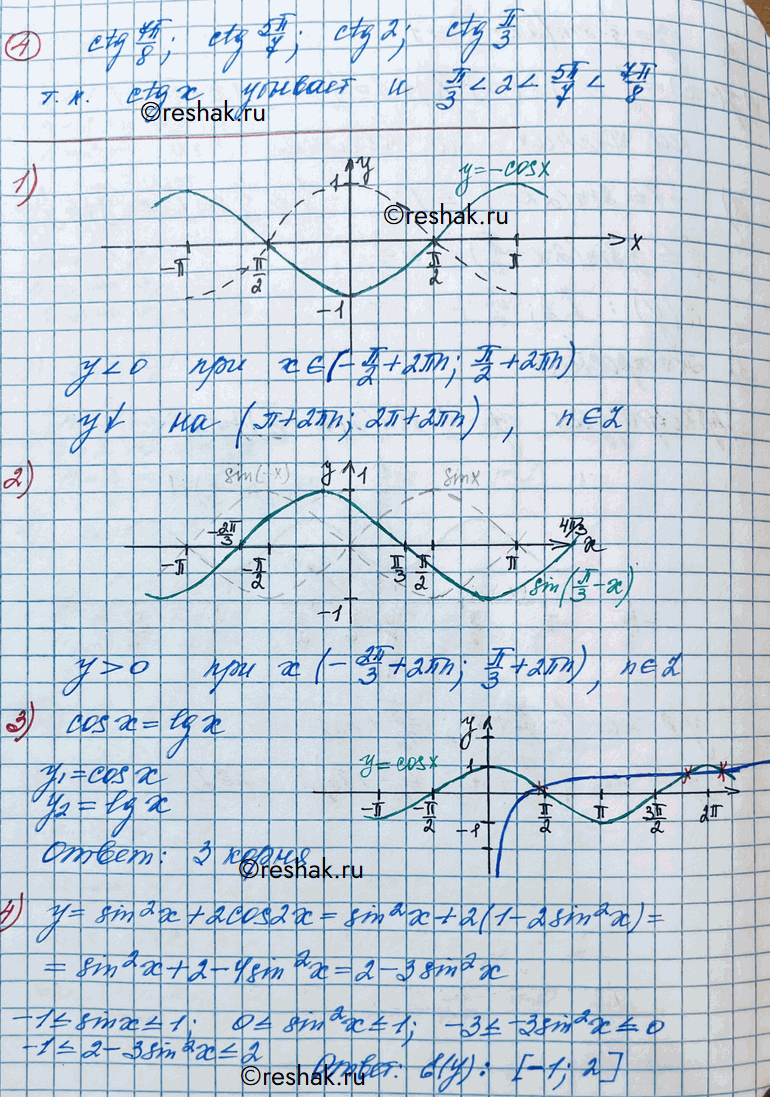 4 ctg 7π/8; ctg 5π/7; ctg 2; ctg π/3
т.к. ctg x убывает и π/3 < 2 < 5π/7 < 7π/8
©reshak.ru
1)
y
1
y=-cosx
©reshak.ru
x
-π π/2 π/2 π
-1
y<0 при x∈(-π/2+2πn; π/2+2πn)
y↓ на (π+2πn; 2π+2πn), n∈Z
2)
sin(-x) y 1 sinx
-2π/3 4π/3
x
-π -π/2 π/3 π/2 π
sin(π/3-x)
-1
y>0 при x (-2π/3+2πn; π/3+2πn), n∈Z
3) cosx=lgx
y
y=cosx 1
y₁=cosx
y₂=lgx
-π -π/2 π/2 π 3π/2 2π
-1
Ответ: 3 корня
©reshak.ru
4) y=sin²x+2cos2x=sin²x+2(1-2sin²x)=
=sin²x+2-4sin²x=2-3sin²x
-1≤sinx≤1; 0≤sin²x≤1; -3≤-3sin²x≤0
-1≤2-3sin²x≤2
Ответ: E(y): [-1; 2]
©reshak.ru